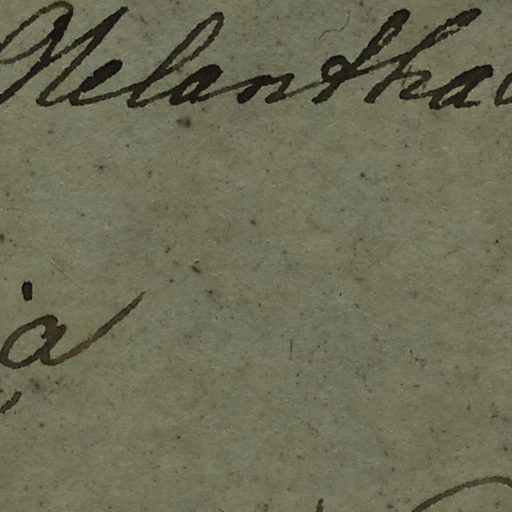 Melantha
a